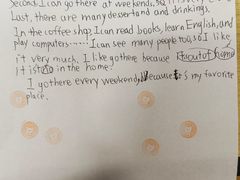 Second, I can go there at weekends, so
Last, there are many dessert and drinkings.
In the coffee shop I can read books, learn English, and
play computers...... I can see many people too, so I like
it very much. I like go there because
it is in the home.
I go there every weekend, because it's my favorite
place.